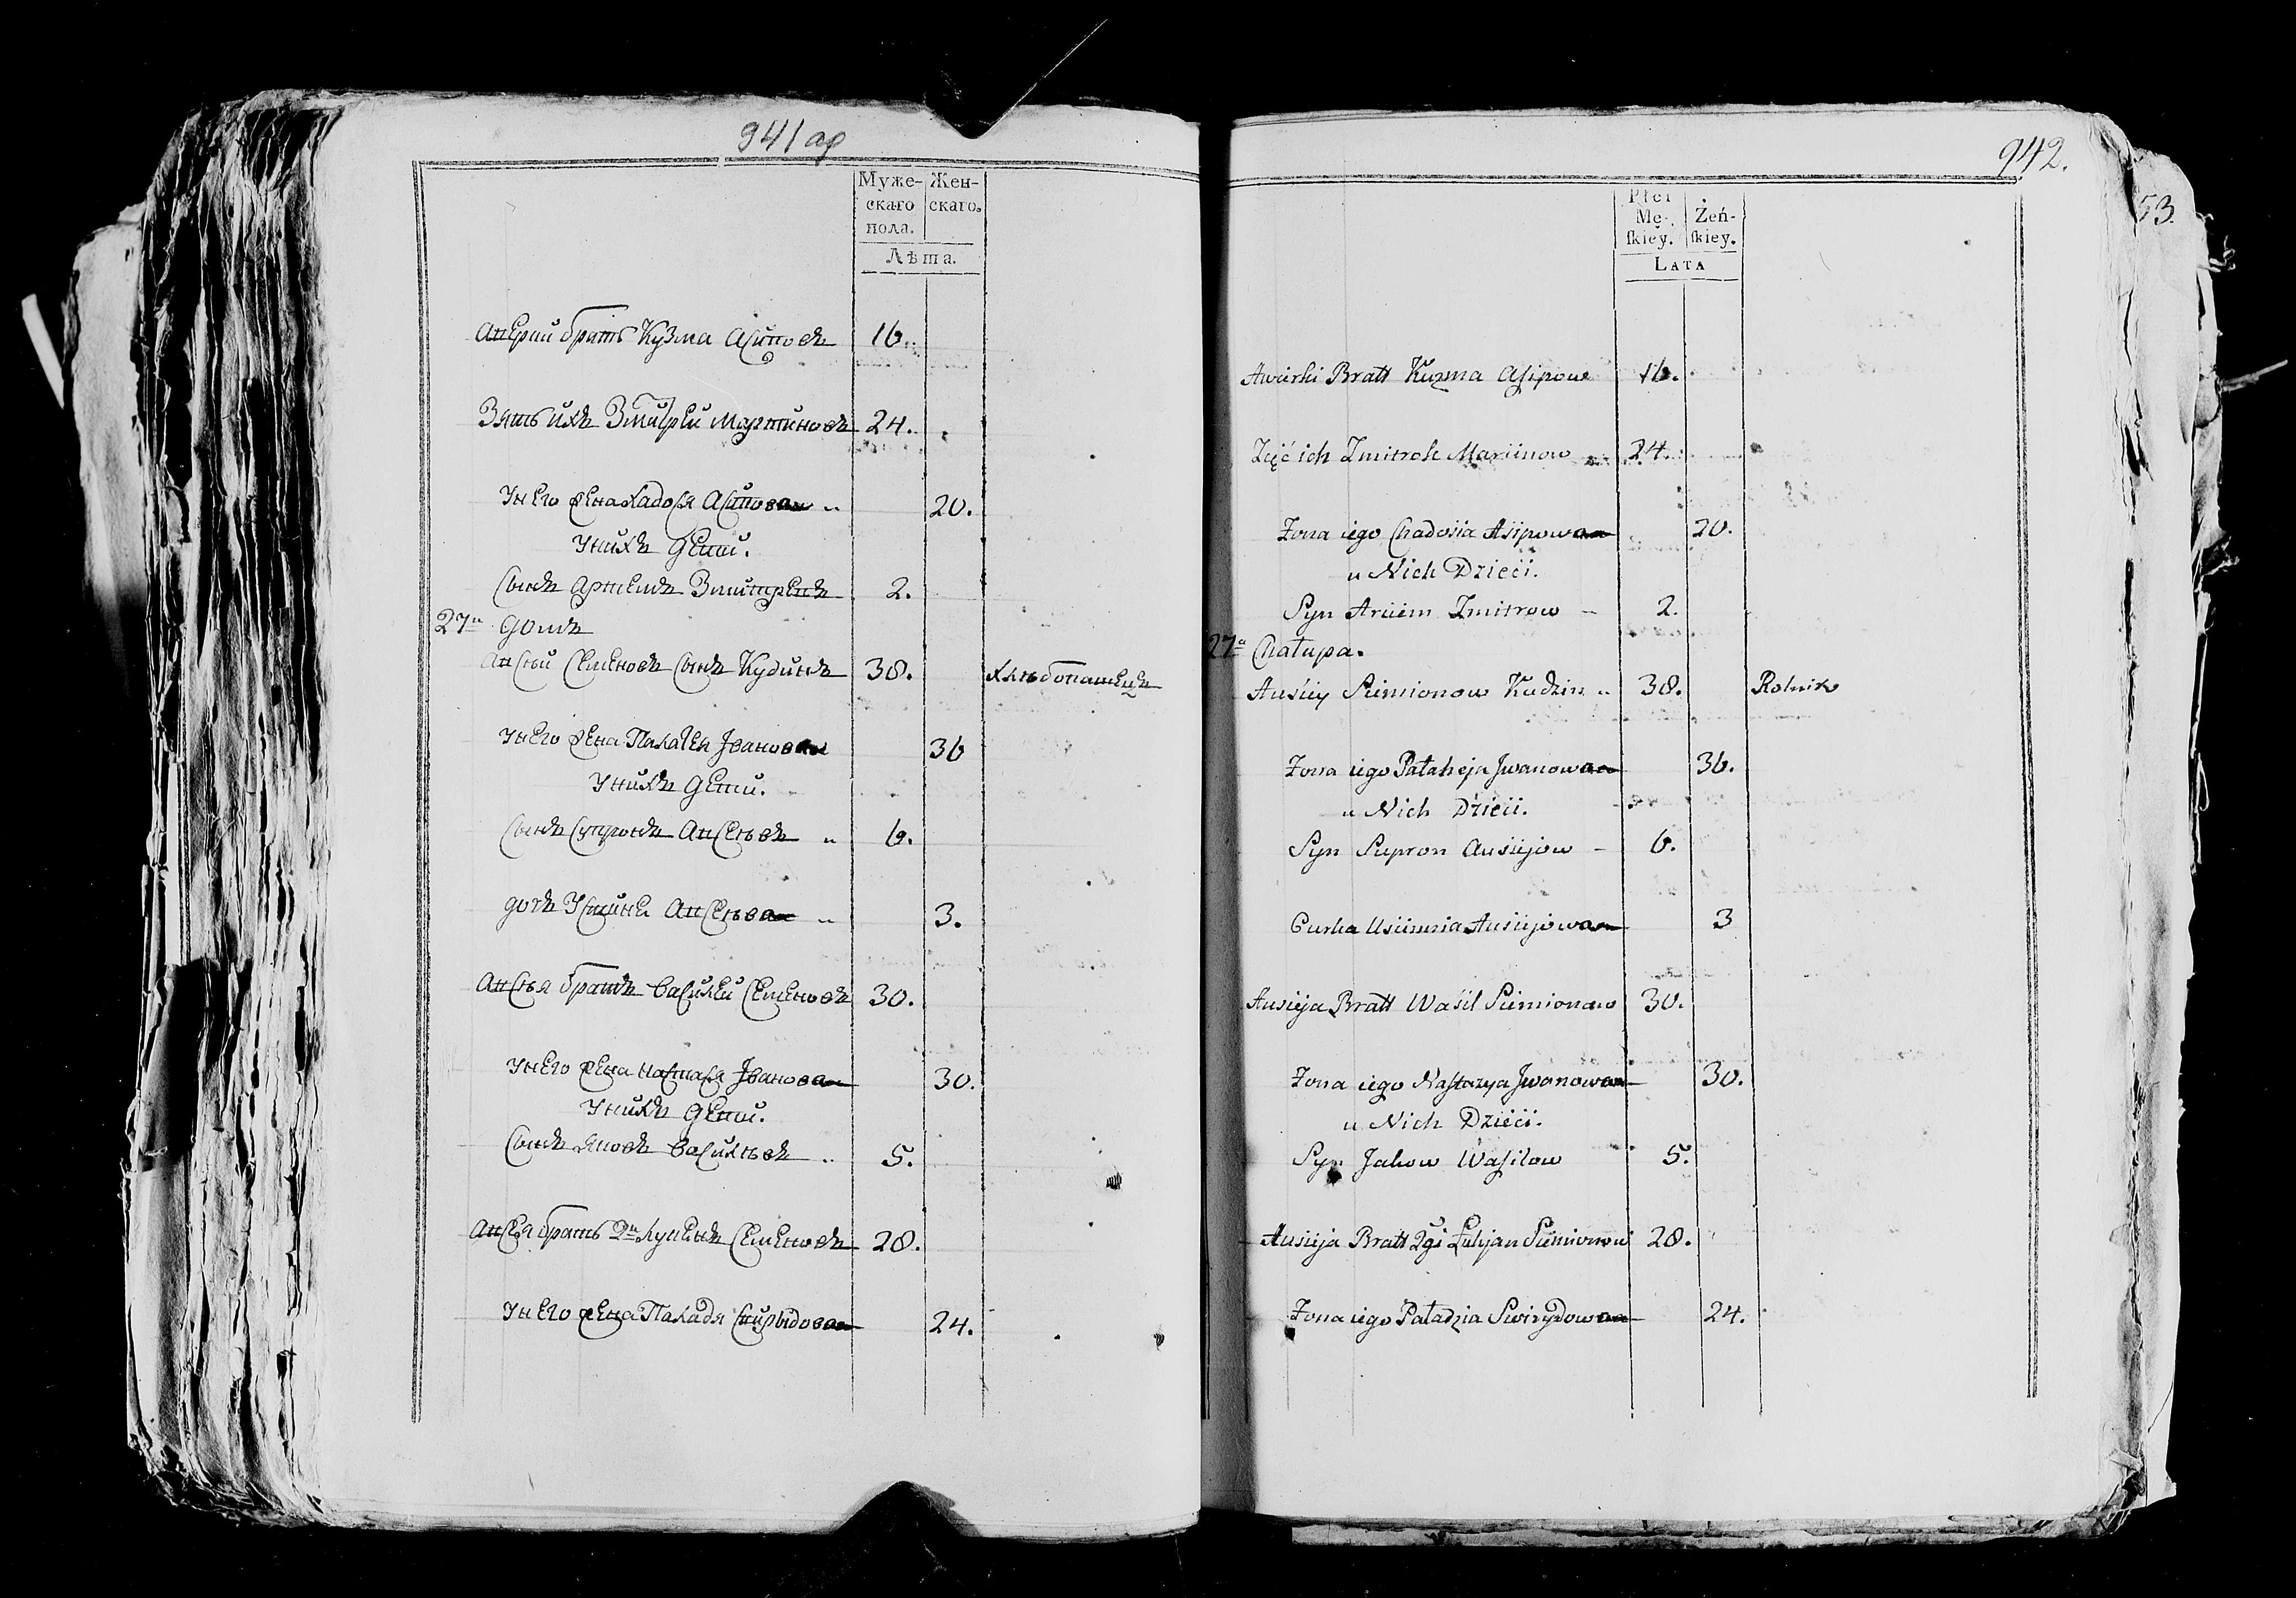 941 ар
Муже-
скаго
пола.
Жен-
скаго.
Лѣта.
братъ Кузма Асиповъ 16.
Зять ихъ Змитрей Мартиновъ 24.
У него жена Хадося Асипова 20.
У нихъ дети.
Сынъ Артемъ 2.
27й домъ
Семеновъ сынъ Кудинъ 38. хлѣбопашецъ
У него жена Палагея Іванова 36
У нихъ дети.
Сынъ Супронъ Авсеевъ 6.
дочь Устинья 3.
братъ Василей Семеновъ 30.
У него жена Настася Іванова 30.
У нихъ дети.
Сынъ Яковъ Васильевъ 5.
братъ 2й Семеновъ 28.
У него жена Паладя 24.
942.
53.
Płci
Mę-
ſkiey.
Żeń-
ſkiey.
LATA
Bratt Kuzma Asipow 16.
Zięć ich Zmitrok 24.
Żona iego Chadosia Asipowa 20.
u Nich Dzieci.
Syn Arciem Zmitrow 2.
27a Chałupa.
Ausiey Siemionow Kudzin 38. Rolnik
Żona iego Pałaheja Jwanowa 36.
u Nich Dzieci.
Syn Supron Ausiejow 6.
Curka Uscinnia Ausiejowa 3
Ausieja Bratt Wasil Siemionow 30.
Żona iego Nastazya Jwanowa 30.
u Nich Dzieci.
Syn Jakow Wasilow 5.
Ausieja Bratt 2gi Łukjan Siemionow 28.
Żona iego Paładzia Swirydowa 24.